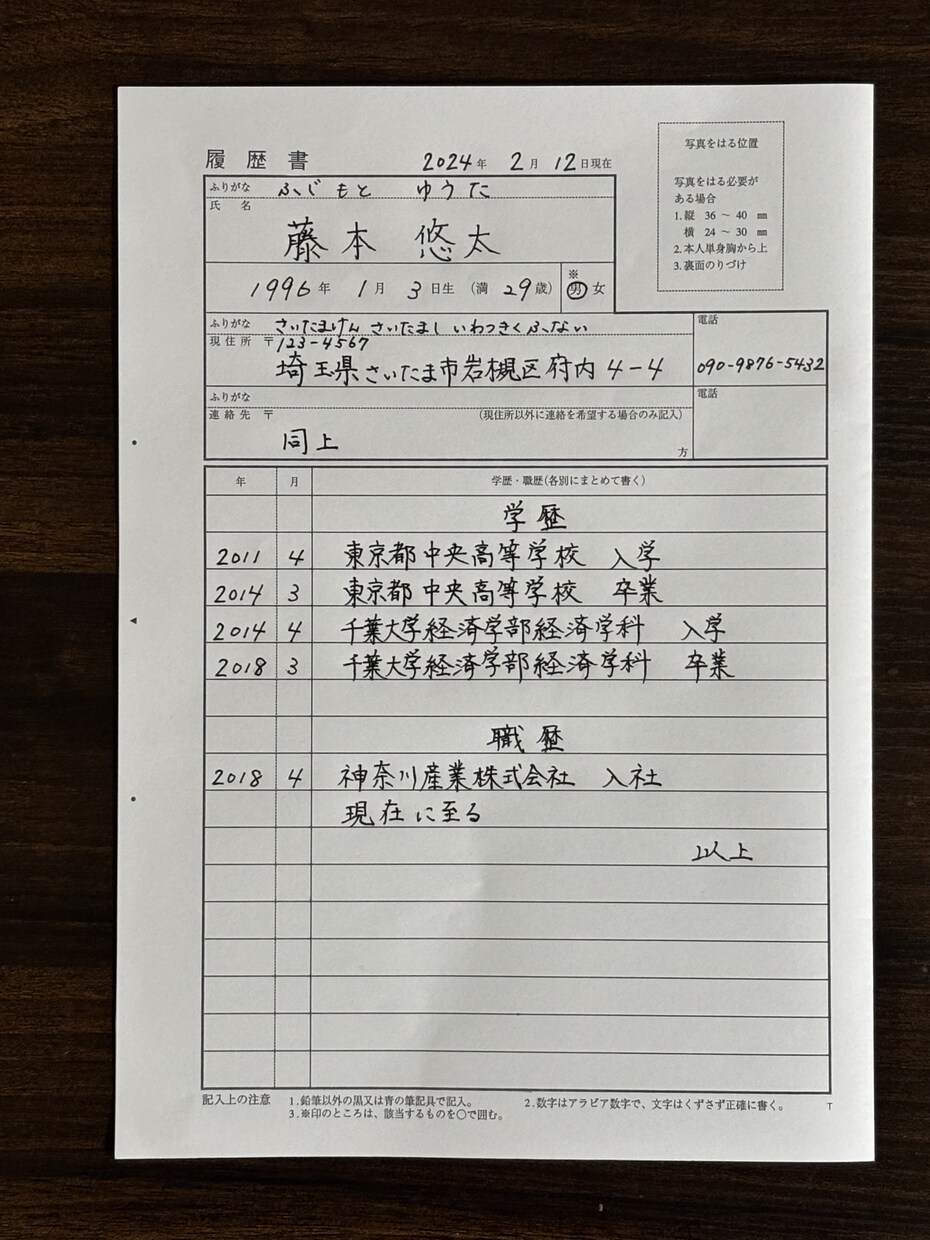 履歴書 2024年 2月 12日現在
ふりがな ふじもと ゆうた
氏名
藤本 悠太
1996年 1月 3日生 (満 29歳) ※ 男 女
写真をはる位置
写真をはる必要が
ある場合
1.縦 36 〜 40 ㎜
横 24 〜 30 ㎜
2.本人単身胸から上
3.裏面のりづけ
ふりがな さいたまけん さいたまし いわつきく ふない
現住所 〒123-4567
埼玉県さいたま市岩槻区府内4-4
電話
090-9876-5432
ふりがな
連絡先 〒 (現住所以外に連絡を希望する場合のみ記入)
同上
方
電話
年 月 学歴・職歴(各別にまとめて書く)
学歴
2011 4 東京都中央高等学校 入学
2014 3 東京都中央高等学校 卒業
2014 4 千葉大学経済学部経済学科 入学
2018 3 千葉大学経済学部経済学科 卒業
職歴
2018 4 神奈川産業株式会社 入社
現在に至る
以上
記入上の注意 1.鉛筆以外の黒又は青の筆記具で記入。 2.数字はアラビア数字で、文字はくずさず正確に書く。
3.※印のところは、該当するものを○で囲む。
T